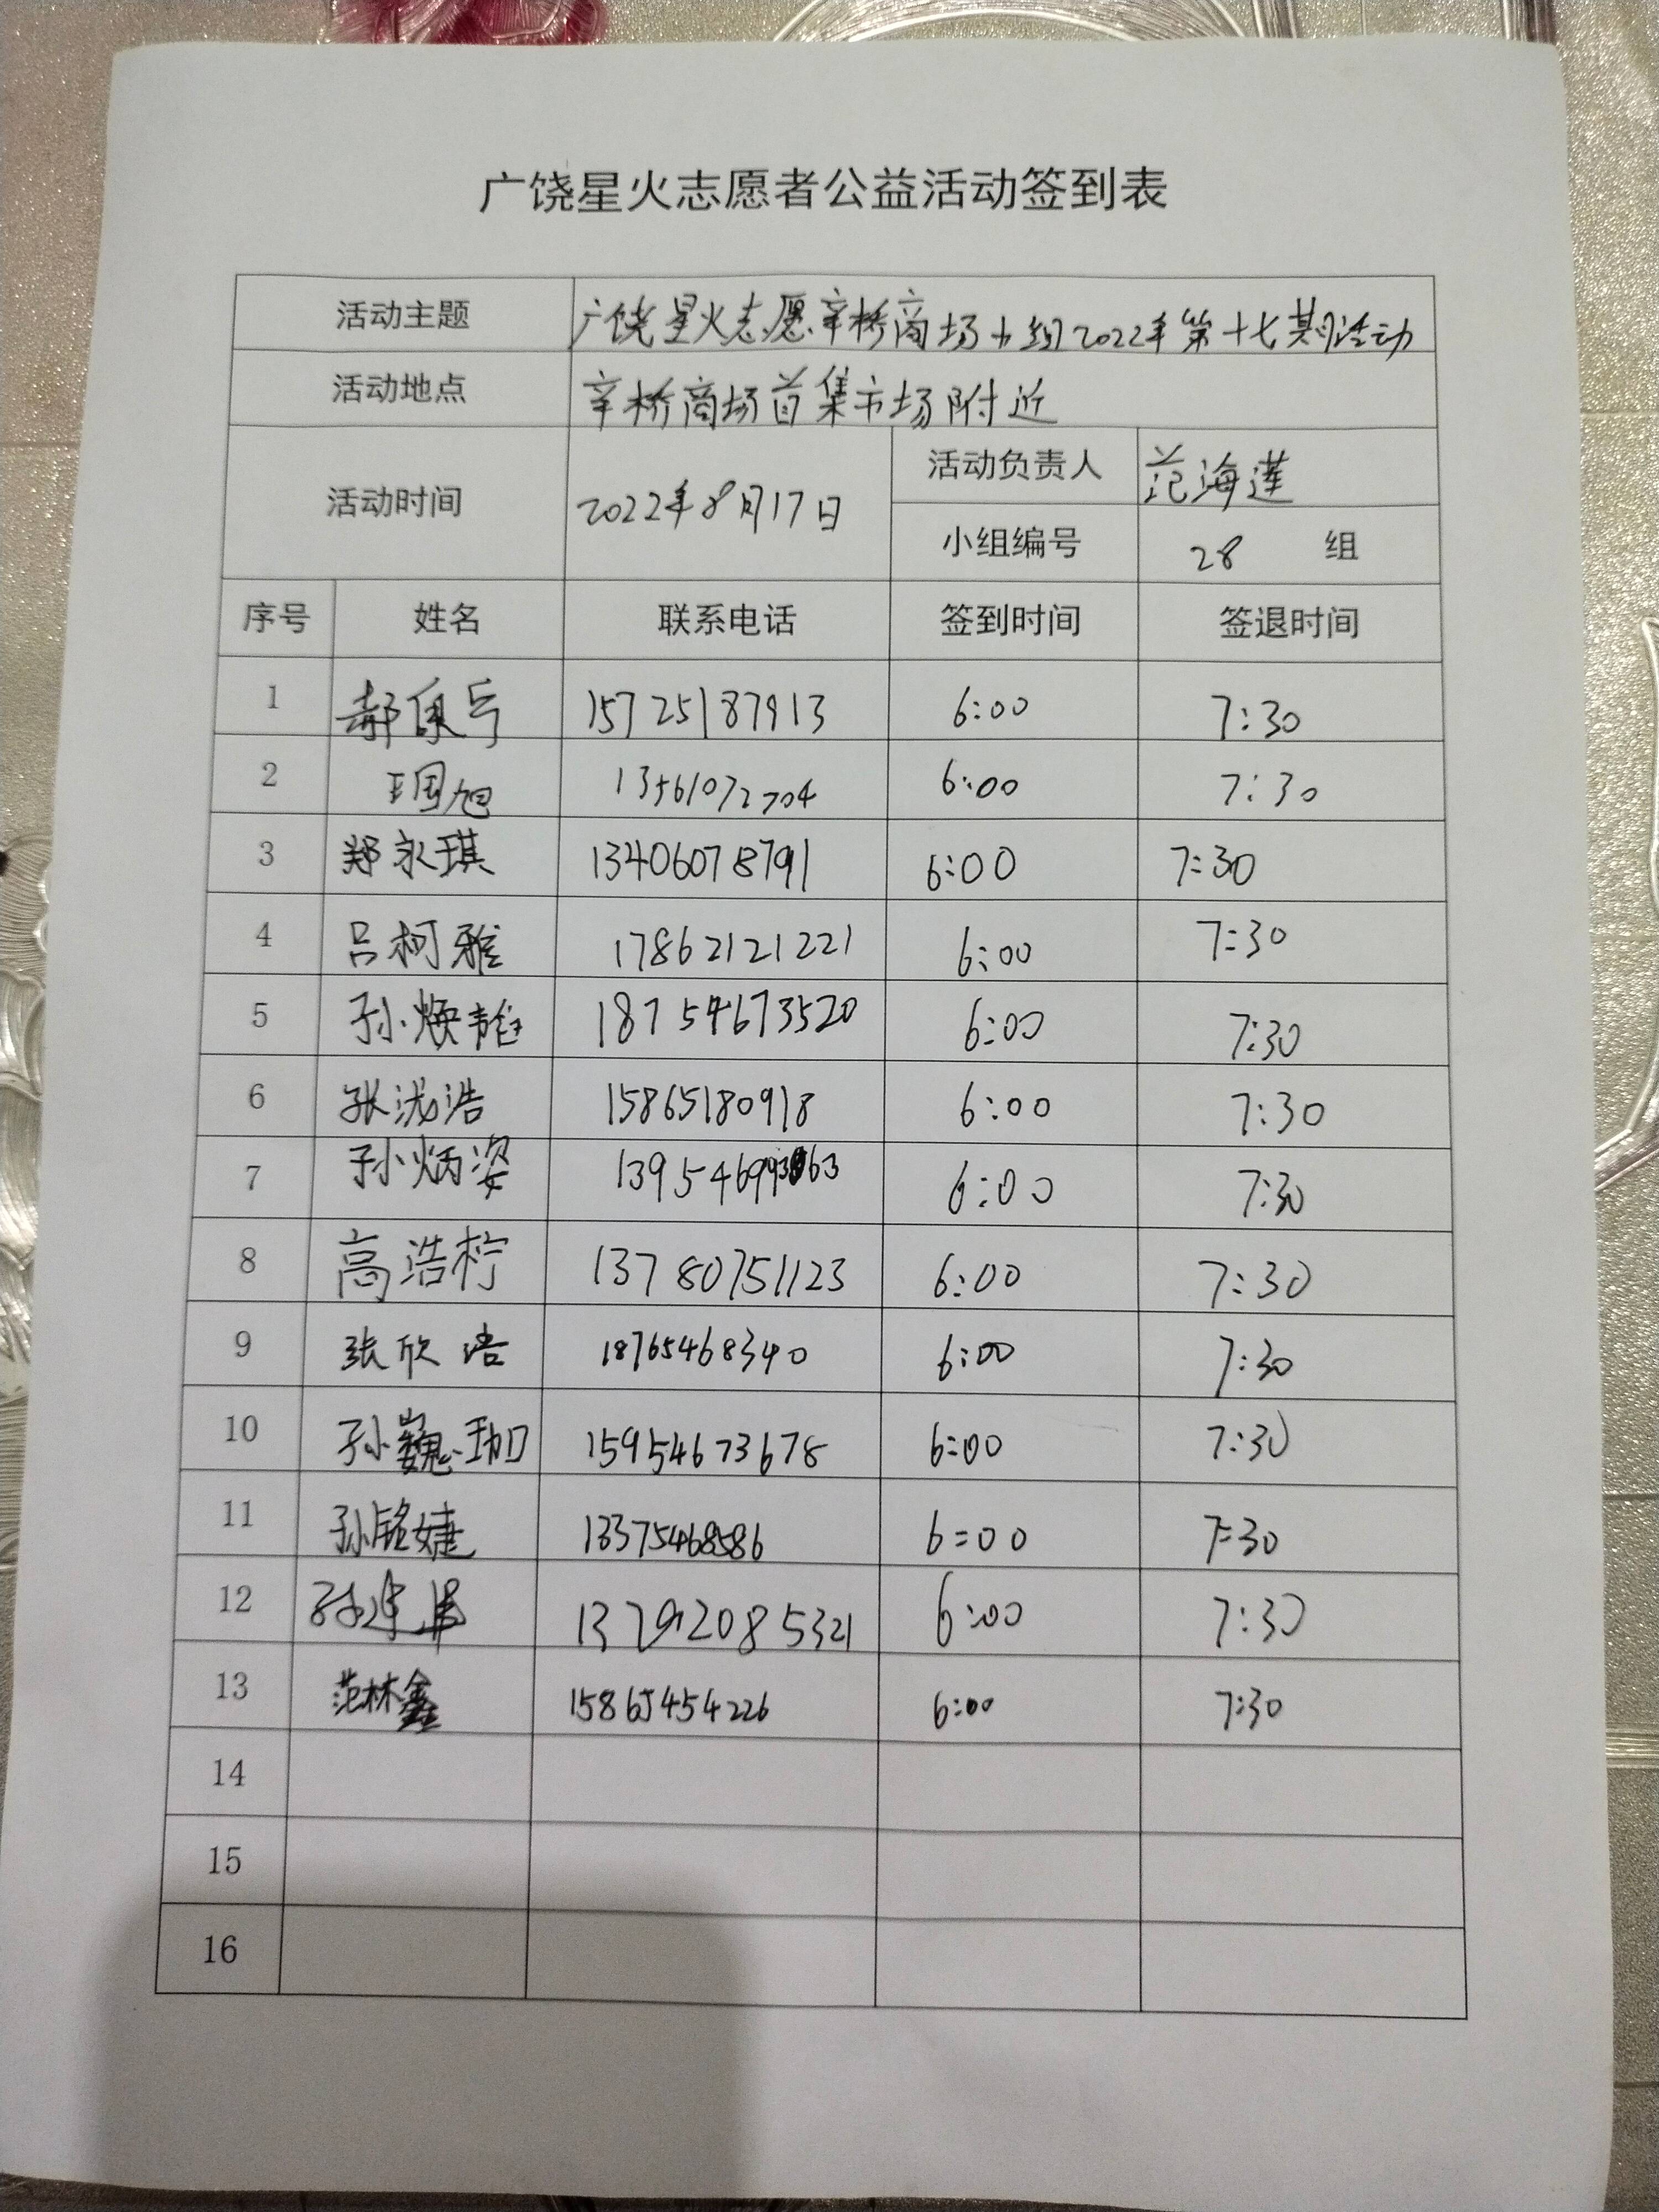 广饶星火志愿者公益活动签到表
活动主题 广饶星火志愿辛桥商场小组2022年第十七期活动
活动地点 辛桥商场首集市场附近
活动时间 2022年8月17日 活动负责人 范海莲
小组编号 28 组
序号 姓名 联系电话 签到时间 签退时间
1 郝 15725187913 6:00 7:30
2 13561072704 6:00 7:30
3 郑永琪 13406078791 6:00 7:30
4 吕柯雅 17862121221 6:00 7:30
5 孙焕 18754673520 6:00 7:30
6 张浩 15865180918 6:00 7:30
7 孙炳姿 6:00 7:30
8 高浩柠 13780751123 6:00 7:30
9 张欣浩 18765468340 6:00 7:30
10 孙巍珈 15954673678 6:00 7:30
11 孙铭婕 13375468586 6:00 7:30
12 孙 13792085321 6:00 7:30
13 范林鑫 15865454226 6:00 7:30
14
15
16